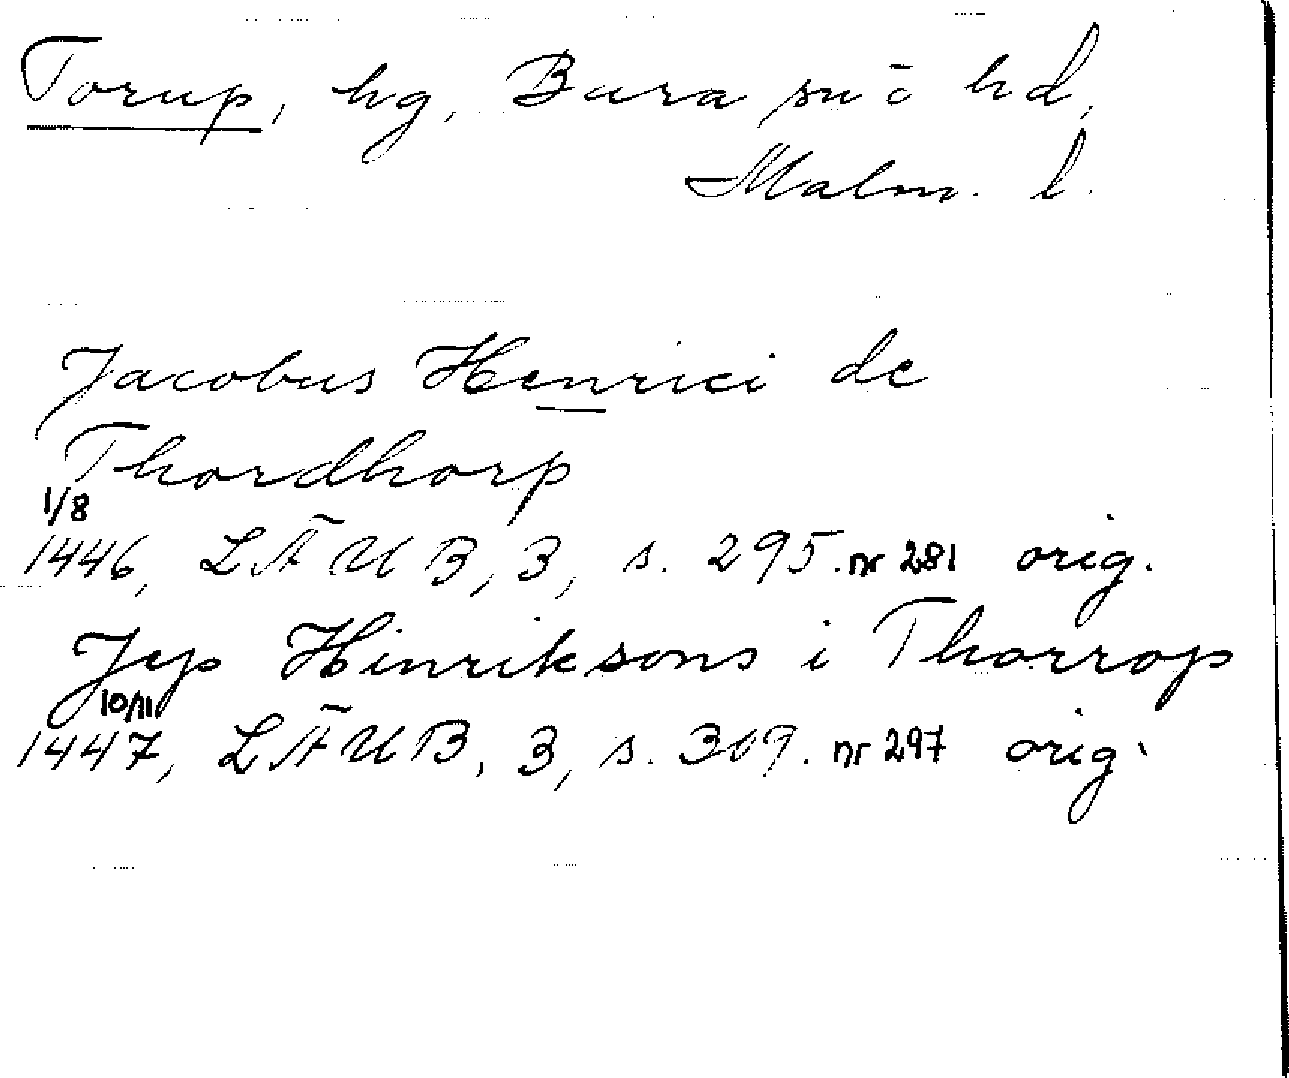 Torup, hg, Bara sn o hd,
Malm. l.
Jacobus Henrici de
Thordhorp
1/8
1446, LÄUB, 3, s. 295. nr 281 orig.
Jep Hinriksøns i Thorrop
10/11
1447, LÄUB, 3, s. 309. nr 297 orig.